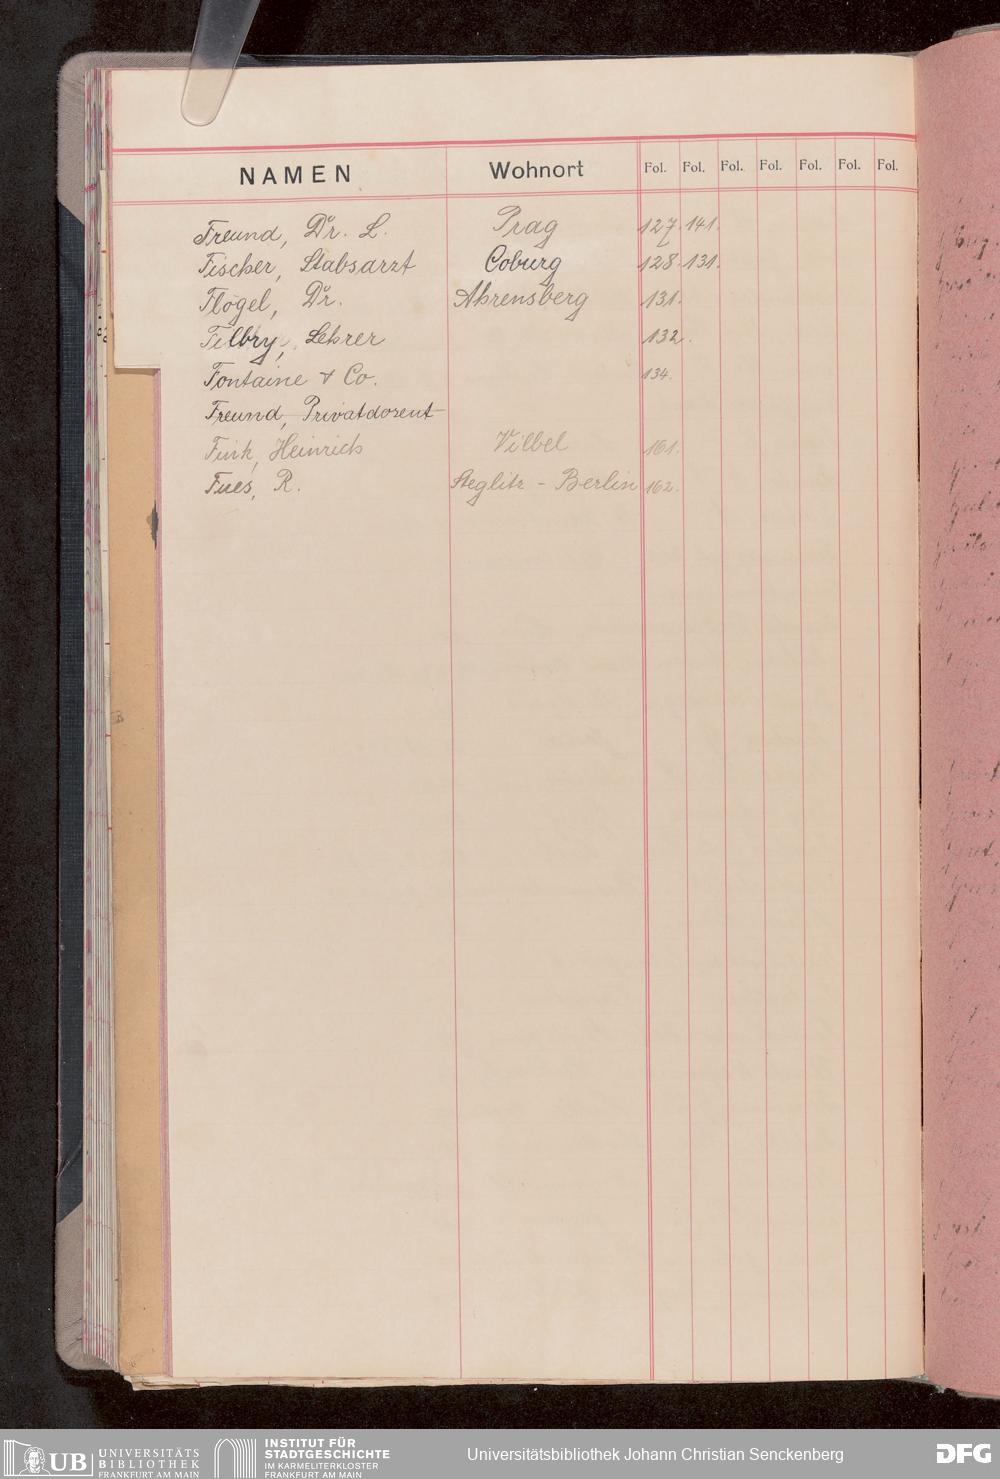 NAMEN Wohnort Fol. Fol. Fol. Fol. Fol. Fol. Fol.
Freund, Dr. L. Prag 127. 141.
Fischer, Stabsarzt Coburg 128. 131.
Flögel, Dr. Ahrensberg 131.
Filbry, Lehrer 132.
Fontaine & Co. 134.
Freund, Privatdozent
Fink, Heinrich Vilbel 161.
Fues, R. Steglitz - Berlin 162.
UB UNIVERSITÄTS BIBLIOTHEK FRANKFURT AM MAIN
INSTITUT FÜR STADTGESCHICHTE IM KARMELITERKLOSTER FRANKFURT AM MAIN
Universitätsbibliothek Johann Christian Senckenberg
DFG